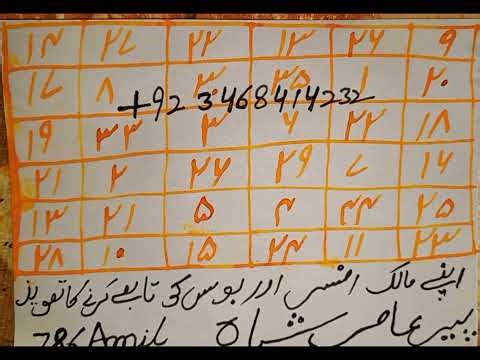 ۱۴ ۲۷ ۲۲ ۱۳ ۲۶ ۹
۱۷ ۸ ۳۰ ۳۵ ۱ ۲۰
+92 3468414232
۱۹ ۳۳ ۳ ۶ ۲۲ ۱۸
۲۱ ۲ ۲۶ ۲۹ ۷ ۱۶
۱۳ ۲۱ ۵ ۴ ۳۴ ۲۵
۲۸ ۱۰ ۱۵ ۲۴ ۱۱ ۲۳
اپنے مالک افسر اور بوس کو تابع کرنے کا تعویذ
پیر عامر شاہ 786 Amil